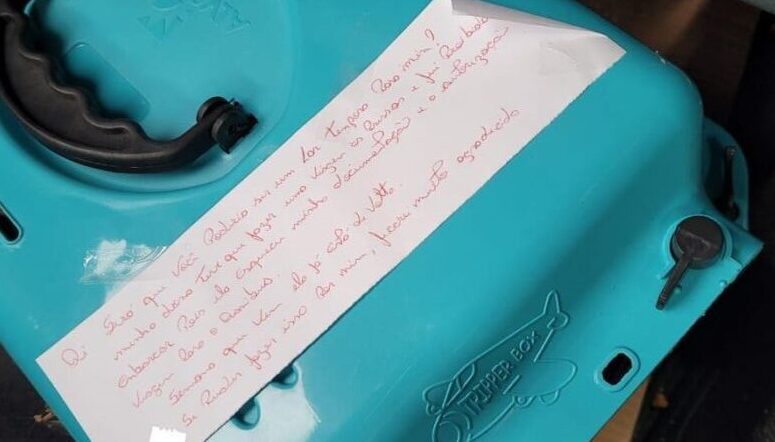 Oi Será que você Poderia ser um Lar Para mim?
minha dona Teve que fazer uma Viagem as Pressas e fui Proibido
embarcar Pois ela esqueceu minha documentação e a autorização
Viagem Para o
Semana que Vem ela já está de Volta.
Se Puder fazer isso Por mim, ficarei muito agradecido
TRIPPER BOX